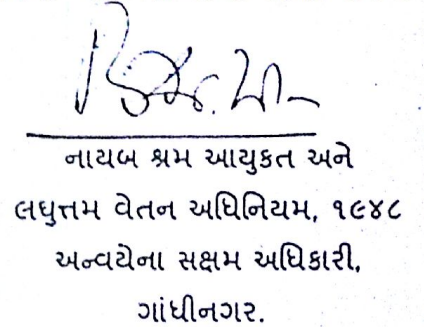 નાયબ શ્રમ આયુકત અને
લઘુત્તમ વેતન અધિનિયમ, ૧૯૪૮
અન્વયેના સક્ષમ અધિકારી,
ગાંધીનગર.